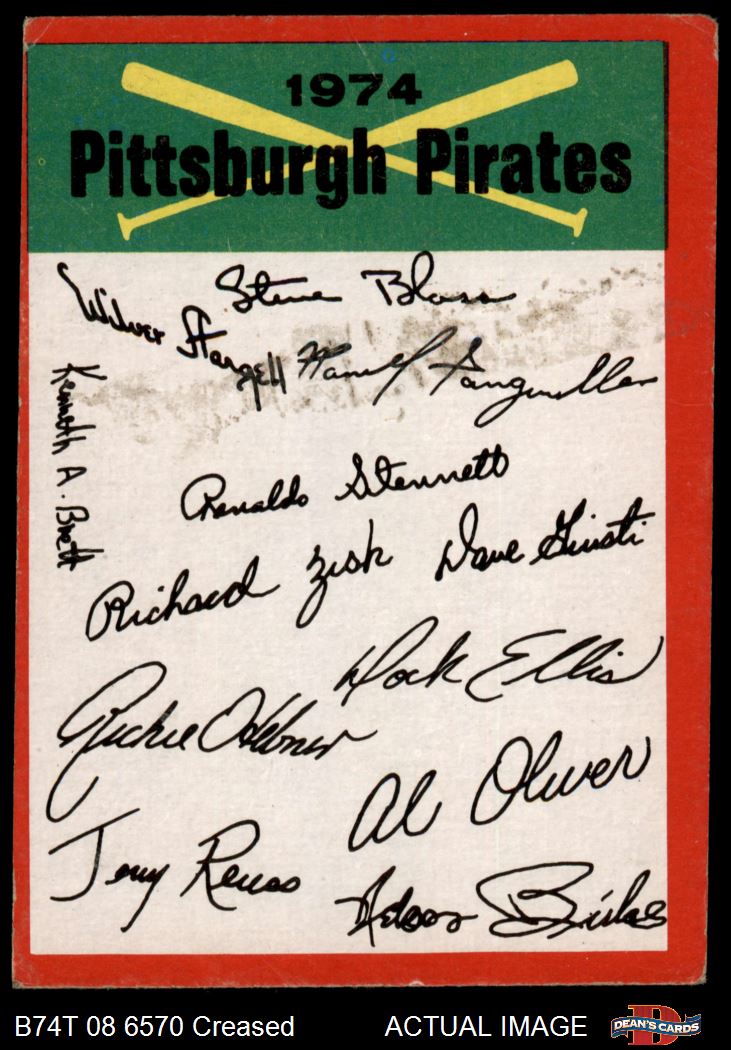 1974
Pittsburgh Pirates
Steve Blass
Wilver Stargell
Manuel Sanguillen
Kenneth A. Brett
Renaldo Stennett
Richard Zisk
Dave Giusti
Dock Ellis
Richie Hebner
Al Oliver
Jerry Reuss
Nelson Briles
B74T 08 6570 Creased
ACTUAL IMAGE
D
DEAN'S CARDS